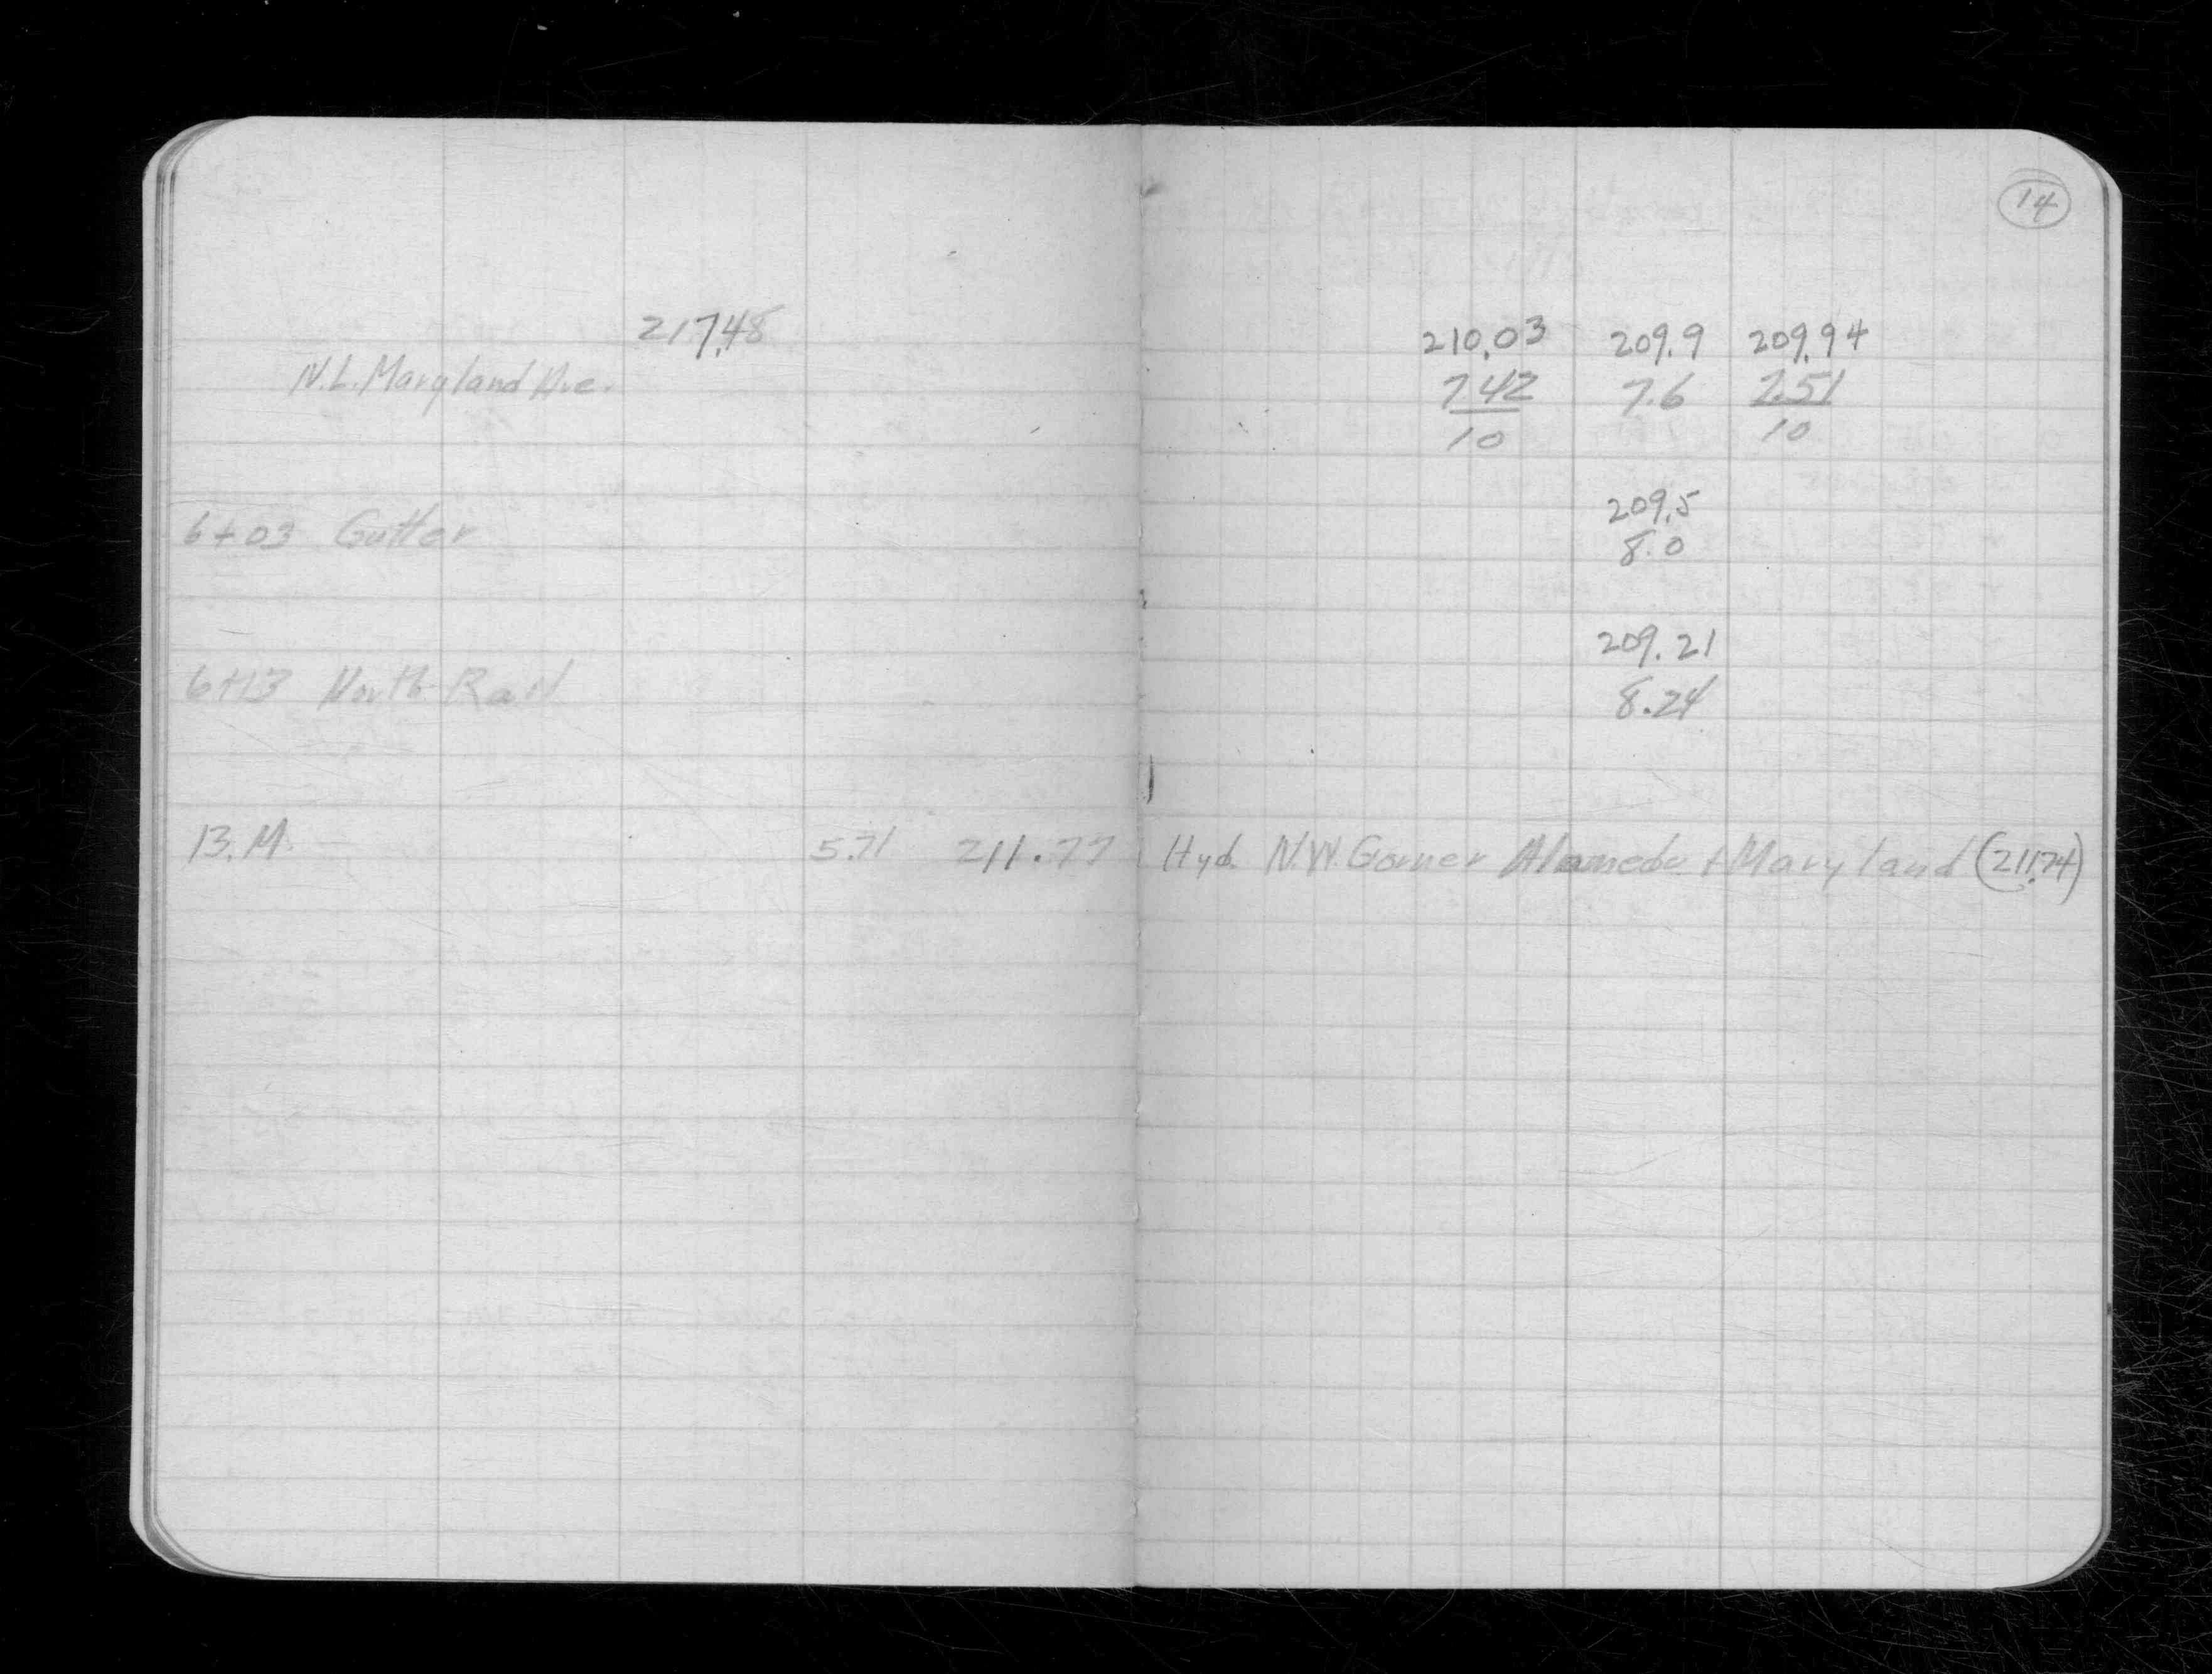 14
217.48 210.03 209.9 209.94
N.L. Maryland Ave. 7.42 7.6 7.51
10 10
209.5
6+03 Gutter 8.0
209.21
6+13 North Rail 8.24
B.M. 5.71 211.77 Hyd. N.W. Corner Alameda + Maryland (211.74)